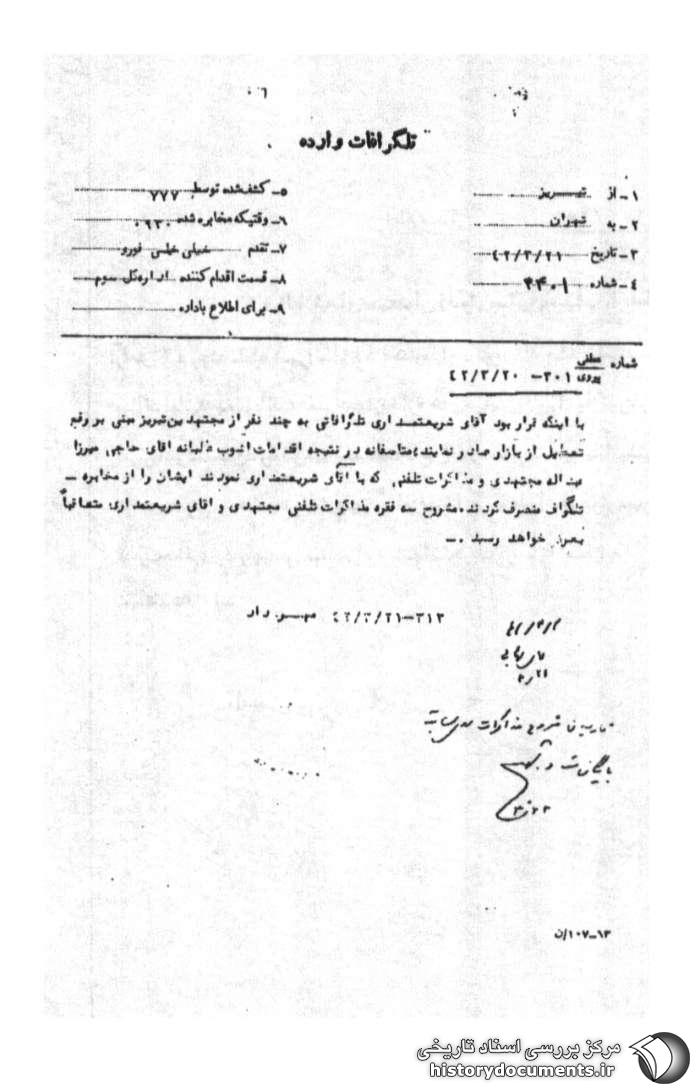 تلگرافات وارده
۱ـ از تبریز
۲ـ به تهران
۳ـ تاریخ ۴۲/۳/۲۱
۴ـ شماره ۴۴۰۱
۵ـ کشف‌شده توسط ۷۷۷
۶ـ وقتیکه مخابره شده ۰۹۳۰
۷ـ تقدم خیلی خیلی فوری
۸ـ قسمت اقدام کننده اداره‌کل سوم
۹ـ برای اطلاع باداره
شماره عطفی
پیروی ۳۰۱ـ ۴۲/۳/۲۰
با اینکه قرار بود آقای شریعتمداری تلگرافاتی به چند نفر از مجتهدین‌تبریز مبنی بر رفع
تعطیل از بازار صادر نمایند، متاسفانه در نتیجه اقدامات آشوب طلبانه آقای حاجی میرزا
عبداله مجتهدی و مذاکرات تلفنی که با آقای شریعتمداری نمودند ایشان را از مخابره ـ
تلگراف منصرف کردند. مشروح سه فقره مذاکرات تلفنی مجتهدی و آقای شریعتمداری متعاقباً
بعرض خواهد رسید .ـ
۳۱۳ـ۴۲/۳/۲۱ مهرداد
۱۳ـ۱۰۷/ن
مرکز بررسی اسناد تاریخی
historydocuments.ir